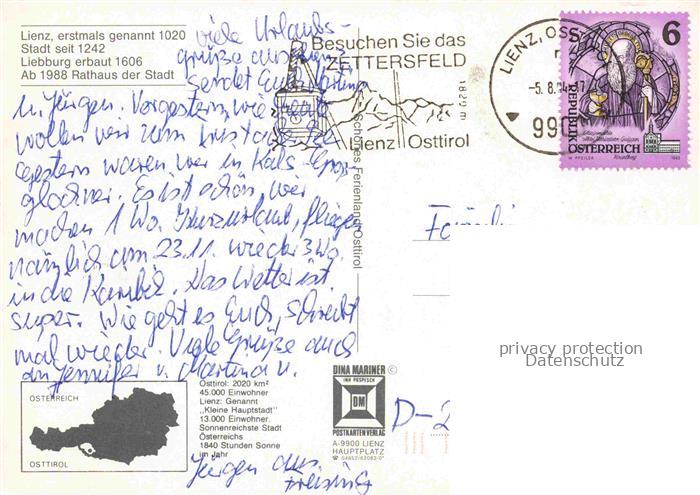 Lienz, erstmals genannt 1020
Stadt seit 1242
Liebburg erbaut 1606
Ab 1988 Rathaus der Stadt
viele Urlaubs-
grüße aus
sendet Euch Martina
u. Jürgen. Vorgestern, wie
wollen wir zum
gestern waren wir in Kals-Groß-
glockner. Es ist schön, wir
machen 1 Wo. Kurzurlaub, fliegen
nämlich am 23.11. wieder 3 Wo.
in die Karibik. Das Wetter ist
super. Wie geht es Euch, schreibt
mal wieder. Viele Grüße auch
an Jennifer v. Martina u.
Jürgen aus
Freising
Besuchen Sie das
ZETTERSFELD
1829 m
Lienz Osttirol
LIENZ, OST
-5.8.
990
6
REPUBLIK
ÖSTERREICH
W. PFEILER
1993
Schönes Ferienland Osttirol
D-2
privacy protection
Datenschutz
ÖSTERREICH
OSTTIROL
Osttirol: 2020 km²
45.000 Einwohner
Lienz: Genannt
"Kleine Hauptstadt"
13.000 Einwohner.
Sonnenreichste Stadt
Österreichs
1840 Stunden Sonne
im Jahr
DINA MARINER ©
INH POSPESCH
DM
POSTKARTENVERLAG
A-9900 LIENZ
HAUPTPLATZ
☎ 04852/62083-0*